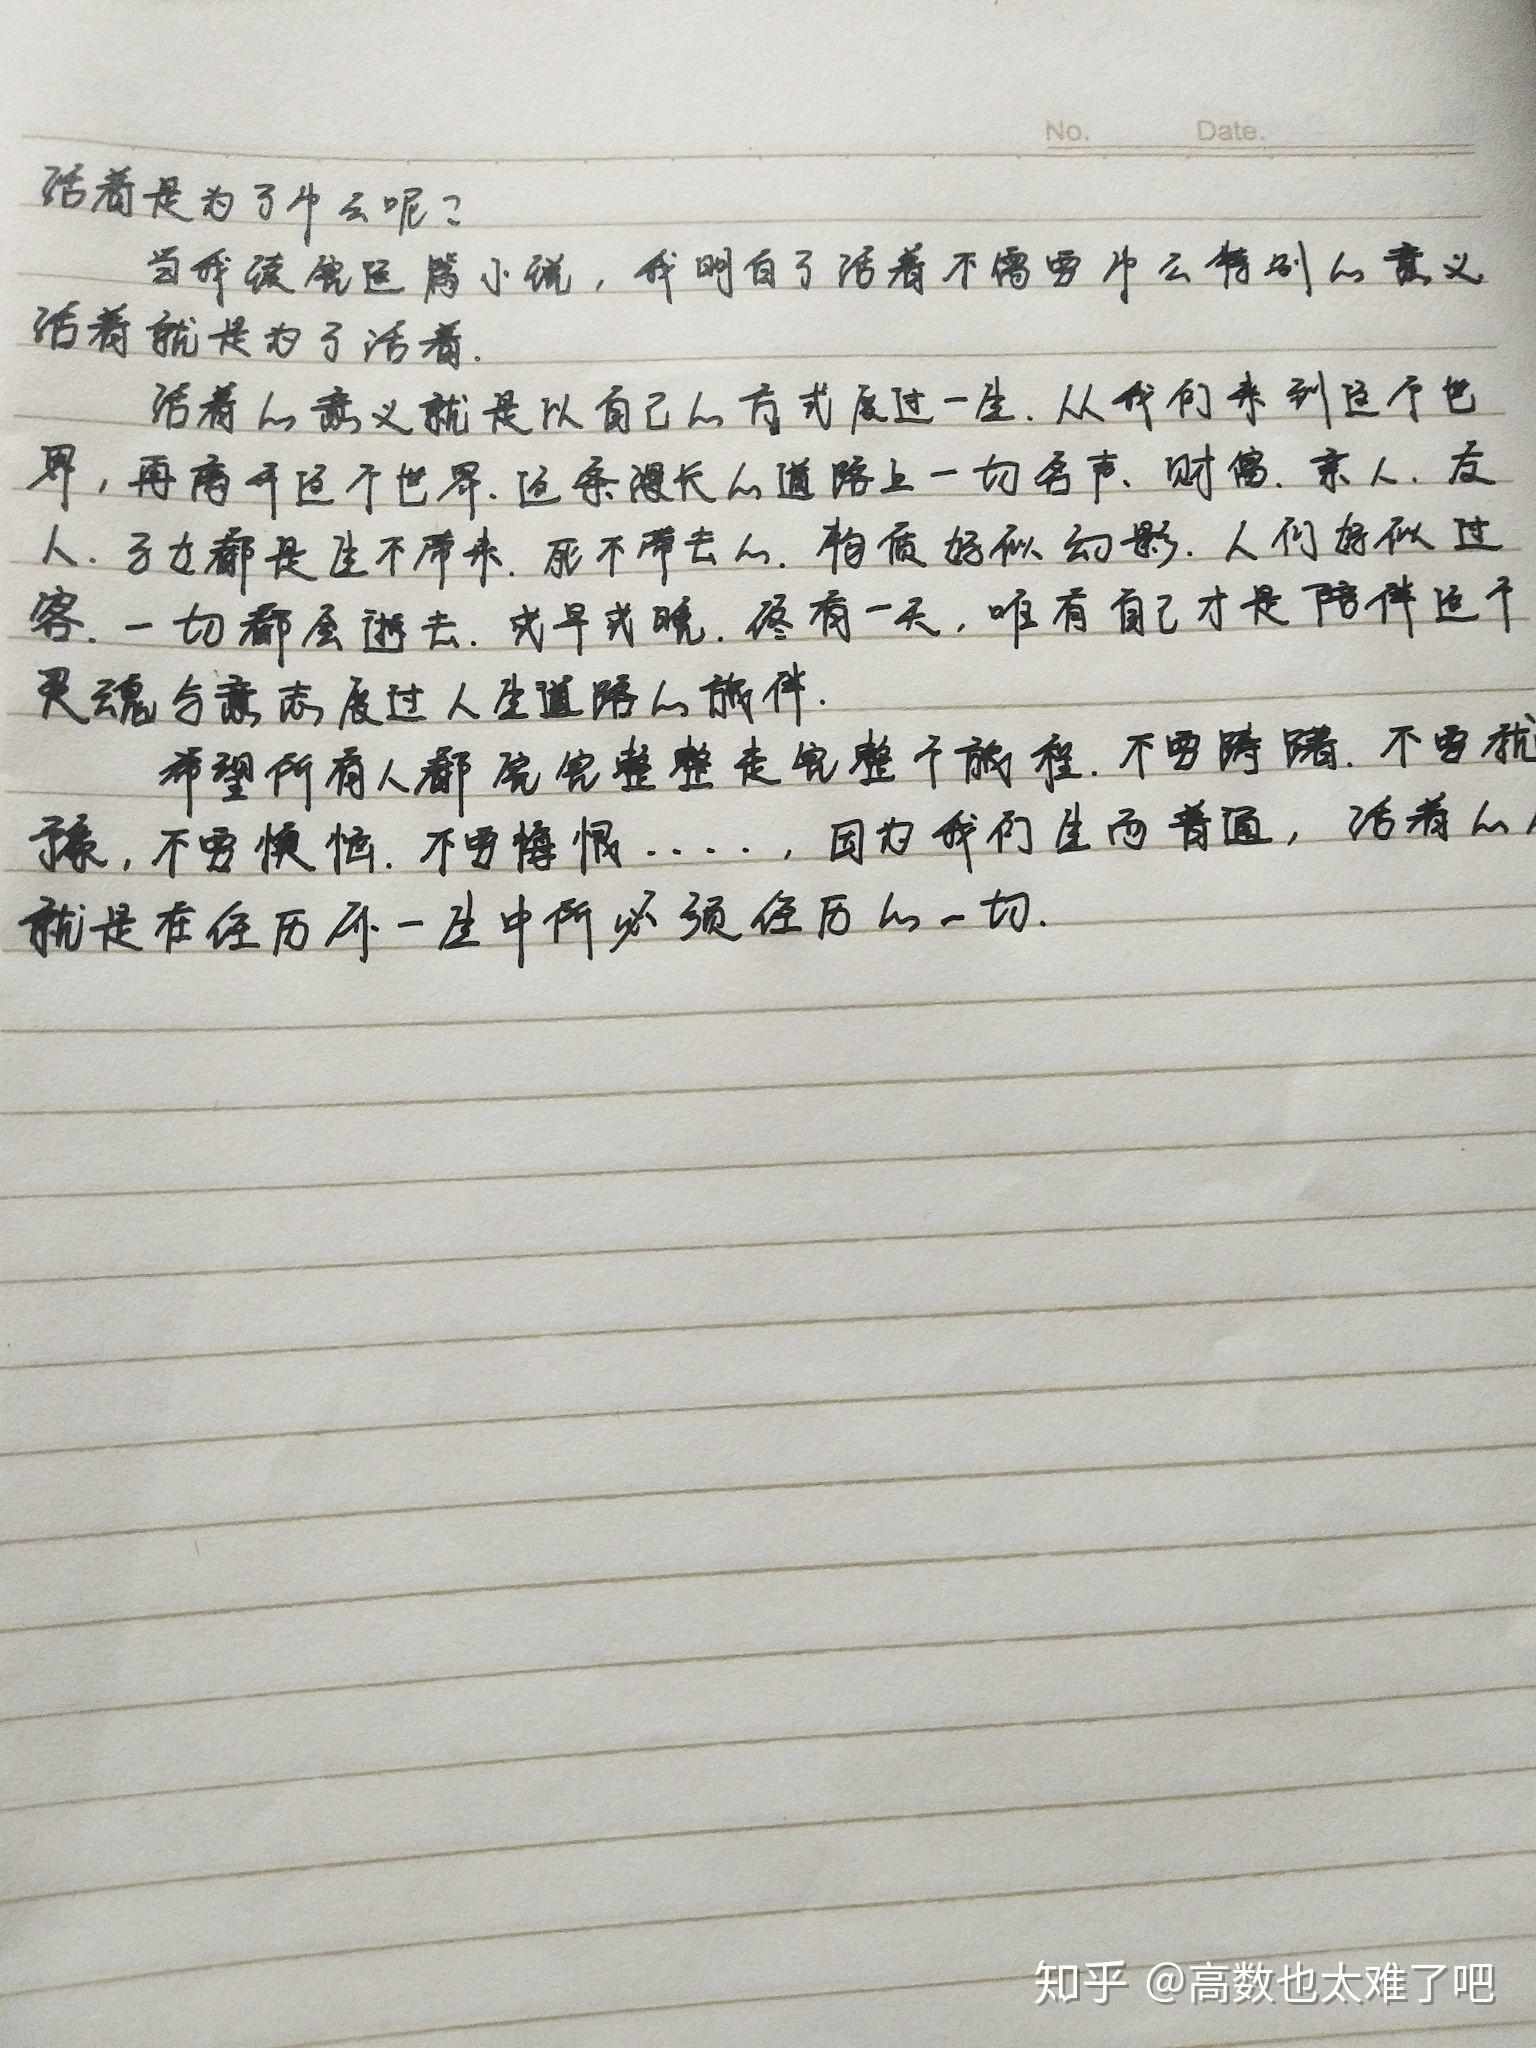 No. Date.
活着是为了什么呢?
当我读完这篇小说,我明白了活着不需要什么特别的意义
活着就是为了活着.
活着的意义就是以自己的方式度过一生.从我们来到这个世
界,再离开这个世界.这条漫长的道路上一切名声、财富.亲人.友
人.子女都是生不带来.死不带去的.物质好似幻影.人们好似过
客.一切都会逝去.或早或晚.终有一天,唯有自己才是陪伴这个
灵魂与意志度过人生道路的旅伴.
希望所有人都完完整整走完整个旅程.不要踌躇.不要犹
豫,不要懊恼.不要悔恨....,因为我们生而普通,活着的
就是在经历你一生中所必须经历的一切.
知乎 @高数也太难了吧